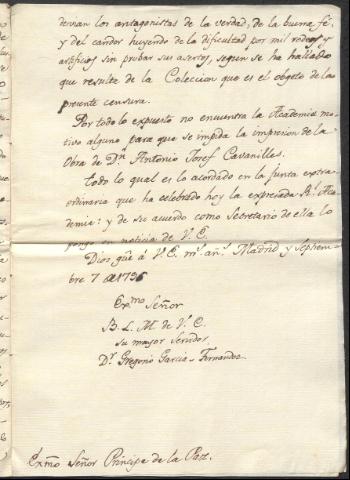 devian los antagonistas de la verdad, de la buena fé,
y del candor huyendo de la dificultad por mil rodeos y
artificios sin probar sus asertos, segun se ha hallado
que resulte de la Coleccion que es el objeto de la
presente censura.
Por todo lo expuesto no encuentra la Academia mo-
tivo alguno para que se impida la impresion de la
Obra de Dn Antonio Josef Cavanilles.
Todo lo qual es lo acordado en la Junta extra-
ordinaria que ha celebrado hoy la expresada Rl Aca-
demia: y de su acuerdo como Secretario de ella lo
pongo en noticia de V.E.
Dios gue á V.E. ms. ans. Madrid y Septiem-
bre 7 de 1796
Exmo Señor
B. L. M. de V. E.
su mayor servidor
Dr Gregorio Garcia Fernandez
Exmo Señor Principe de la Paz.